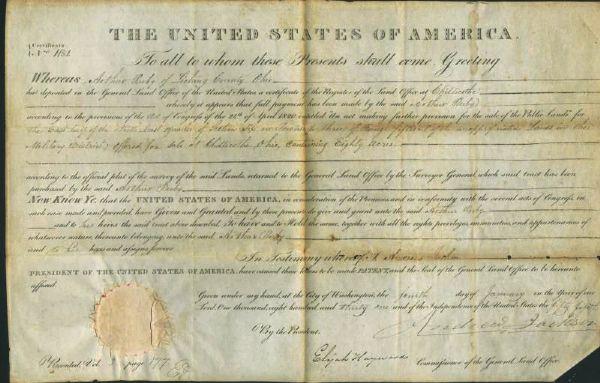 THE UNITED STATES OF AMERICA.
Certificate
No. 1182
To all to whom these Presents shall come Greeting
Whereas Arthur Ruby of Licking County Ohio
has deposited in the General Land Office of the United States a certificate of the Register of the Land Office at Chillicothe
whereby it appears that full payment has been made by the said Arthur Ruby
according to the provisions of the Act of Congress of the 24th of April 1820 entitled An act making further provision for the sale of the Public Lands for
The East half of the quarter of Section Six in Township three of Range fifteen of the Lands in the
Military District offered for sale at Chillicothe Ohio, containing Eighty Acres
according to the official plat of the survey of the said Lands, returned to the General Land Office by the Surveyor General, which said tract has been
purchased by the said Arthur Ruby
Now Know Ye, that the UNITED STATES OF AMERICA, in consideration of the Premises, and in conformity with the several acts of Congress, in
such case made and provided, have Given and Granted, and by these presents do give and grant unto the said Arthur Ruby
and to his heirs the said tract above described. To have and to Hold the same, together with all the rights, privileges, immunities, and appurtenances of
whatsoever nature thereunto belonging, unto the said Arthur Ruby
and to his heirs and assigns forever.
In Testimony whereof I Andrew Jackson
PRESIDENT OF THE UNITED STATES OF AMERICA, have caused these Letters to be made PATENT, and the Seal of the General Land Office to be hereunto
affixed.
Given under my hand, at the City of Washington, the fourth day of January in the Year of our
Lord One thousand eight hundred and thirty one and of the Independence of the United States the fifty fifth
By the President. Andrew Jackson
Elijah Hayward Commissioner of the General Land Office
Recorded, Vol. page 177